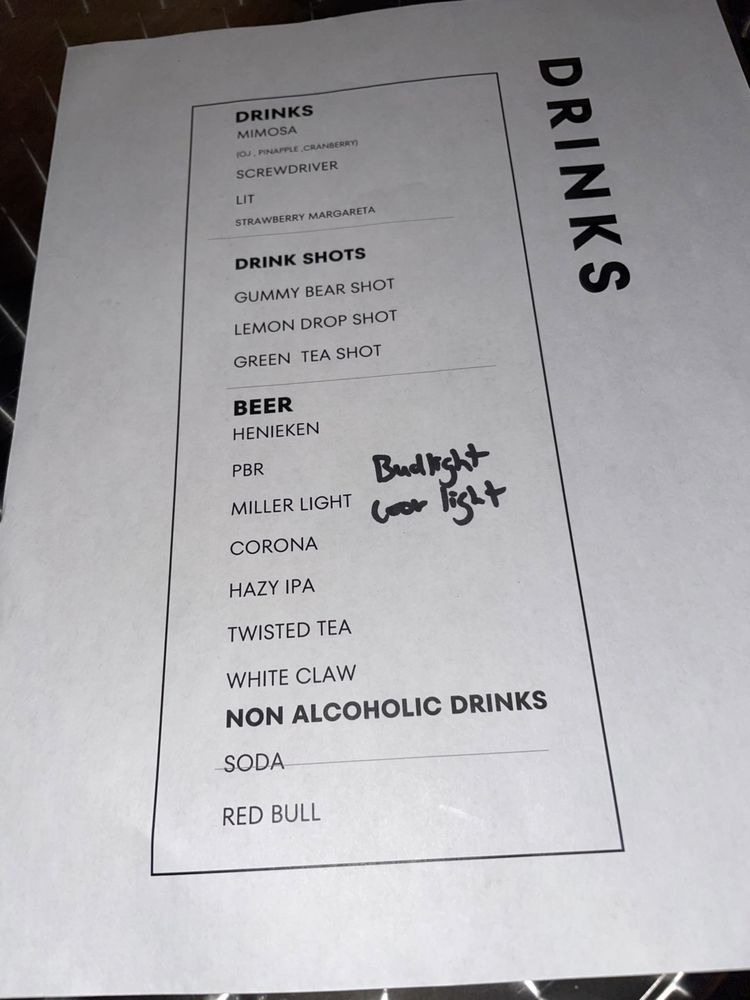 DRINKS
DRINKS
MIMOSA
(OJ , PINAPPLE ,CRANBERRY)
SCREWDRIVER
LIT
STRAWBERRY MARGARETA
DRINK SHOTS
GUMMY BEAR SHOT
LEMON DROP SHOT
GREEN TEA SHOT
BEER
HENIEKEN
PBR
Budlight
MILLER LIGHT
Coor light
CORONA
HAZY IPA
TWISTED TEA
WHITE CLAW
NON ALCOHOLIC DRINKS
SODA
RED BULL